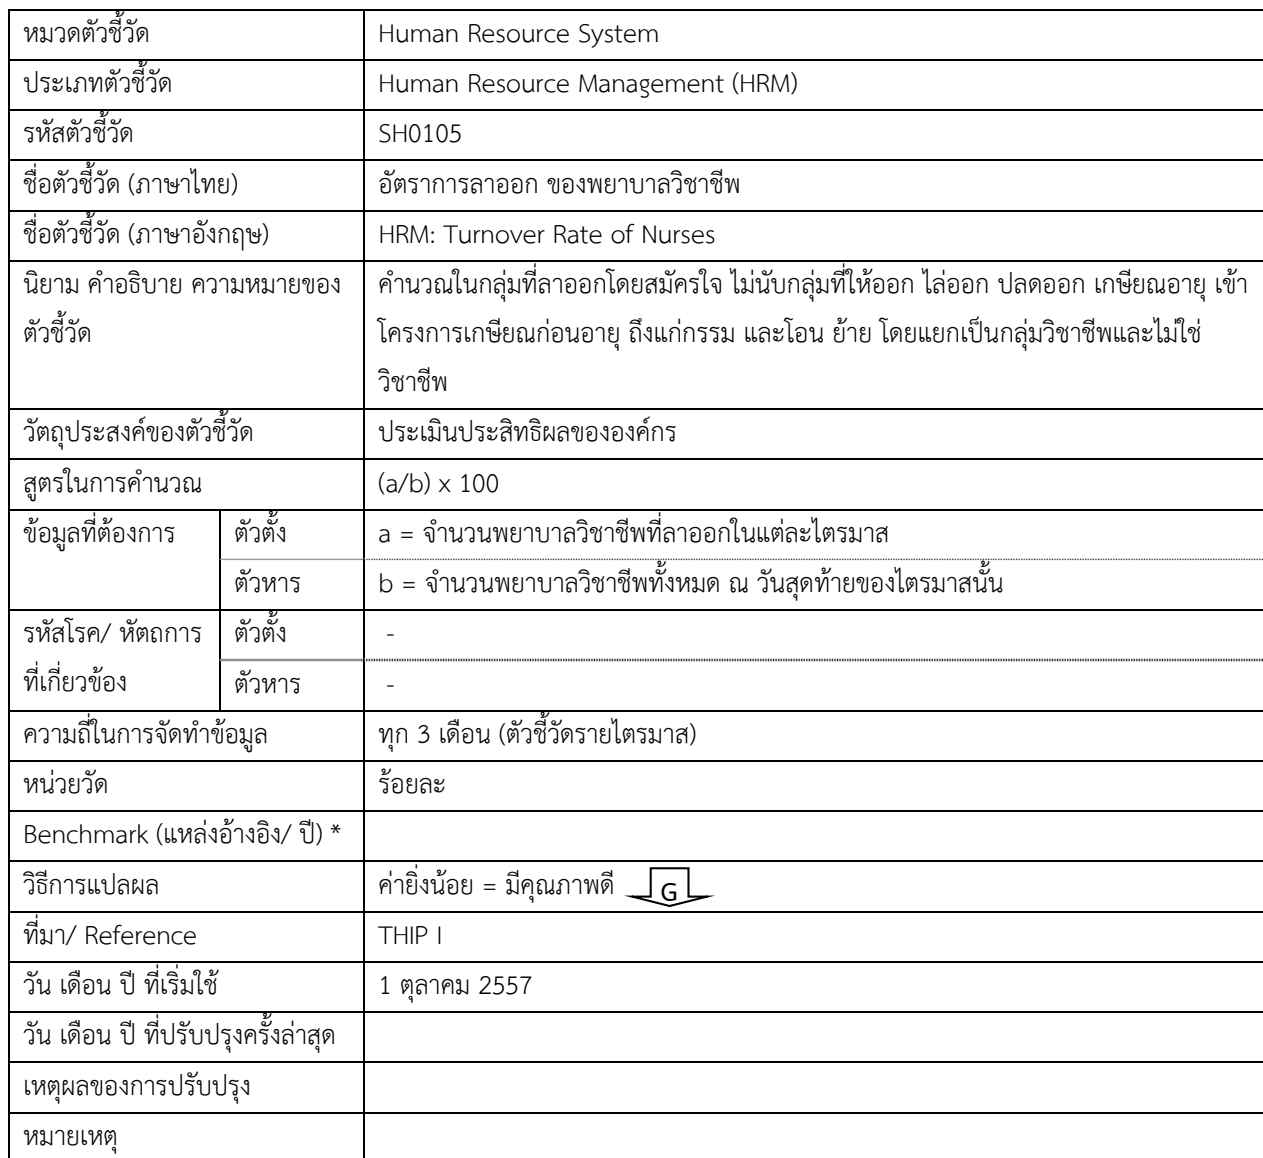 หมวดตัวชี้วัด Human Resource System
ประเภทตัวชี้วัด Human Resource Management (HRM)
รหัสตัวชี้วัด SH0105
ชื่อตัวชี้วัด (ภาษาไทย) อัตราการลาออก ของพยาบาลวิชาชีพ
ชื่อตัวชี้วัด (ภาษาอังกฤษ) HRM: Turnover Rate of Nurses
นิยาม คำอธิบาย ความหมายของ คำนวณในกลุ่มที่ลาออกโดยสมัครใจ ไม่นับกลุ่มที่ให้ออก ไล่ออก ปลดออก เกษียณอายุ เข้า
ตัวชี้วัด โครงการเกษียณก่อนอายุ ถึงแก่กรรม และโอน ย้าย โดยแยกเป็นกลุ่มวิชาชีพและไม่ใช่
วิชาชีพ
วัตถุประสงค์ของตัวชี้วัด ประเมินประสิทธิผลขององค์กร
สูตรในการคำนวณ (a/b) x 100
ข้อมูลที่ต้องการ ตัวตั้ง a = จำนวนพยาบาลวิชาชีพที่ลาออกในแต่ละไตรมาส
ตัวหาร b = จำนวนพยาบาลวิชาชีพทั้งหมด ณ วันสุดท้ายของไตรมาสนั้น
รหัสโรค/ หัตถการ ตัวตั้ง -
ที่เกี่ยวข้อง ตัวหาร -
ความถี่ในการจัดทำข้อมูล ทุก 3 เดือน (ตัวชี้วัดรายไตรมาส)
หน่วยวัด ร้อยละ
Benchmark (แหล่งอ้างอิง/ ปี) *
วิธีการแปลผล ค่ายิ่งน้อย = มีคุณภาพดี G
ที่มา/ Reference THIP I
วัน เดือน ปี ที่เริ่มใช้ 1 ตุลาคม 2557
วัน เดือน ปี ที่ปรับปรุงครั้งล่าสุด
เหตุผลของการปรับปรุง
หมายเหตุ